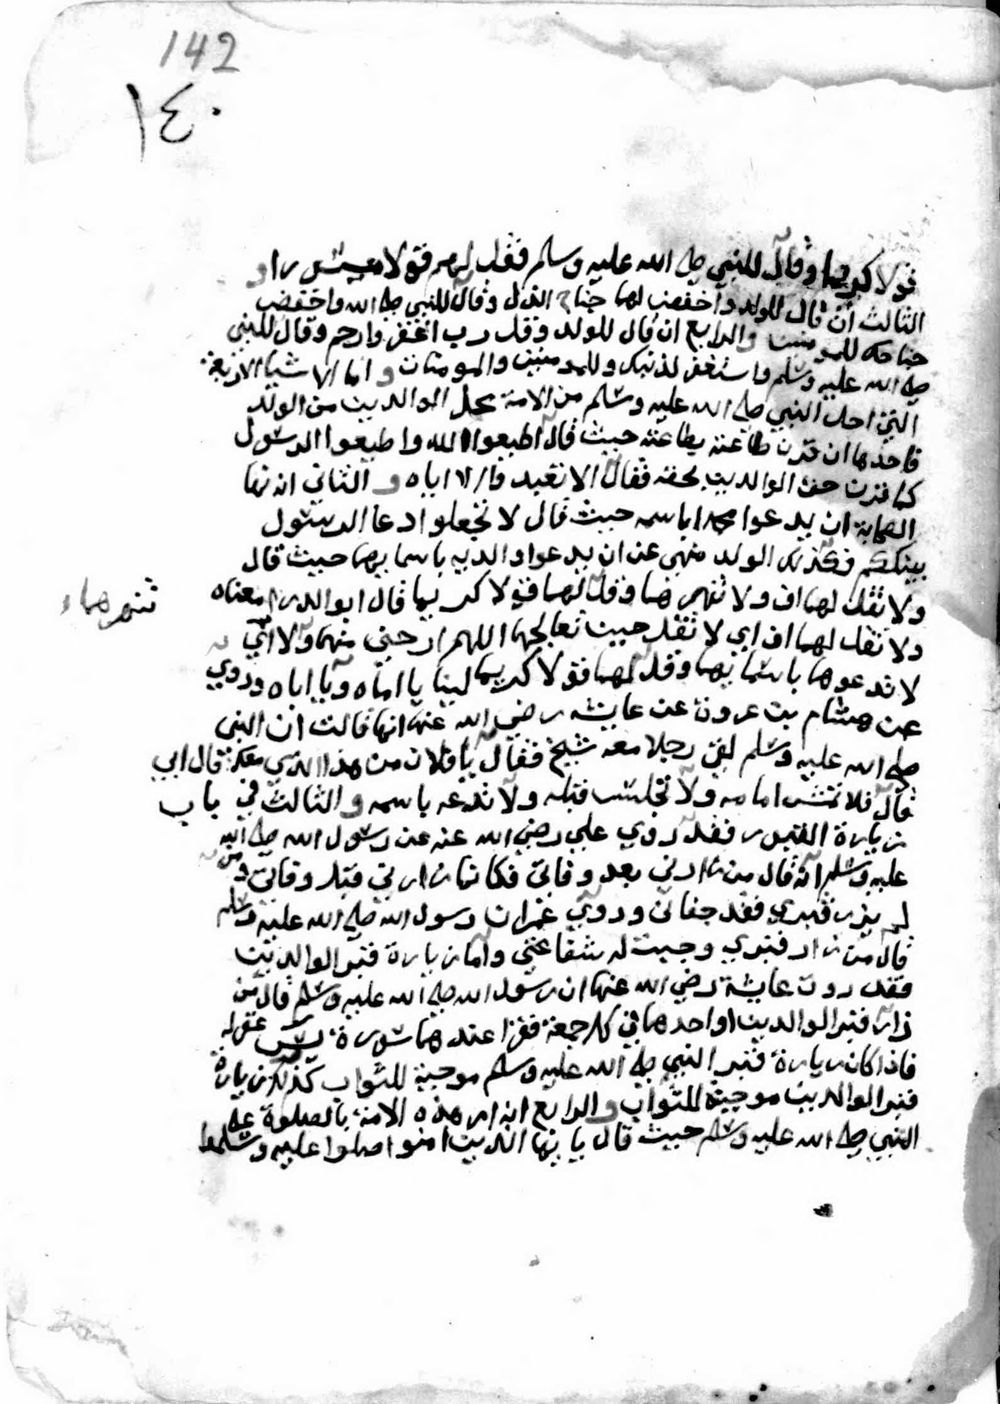 142
١٤٠
قولا كريما وقال للنبي صلى الله عليه وسلم فقل لهم قولا ميسورا و
الثالث ان قال للولد واخفض لهما جناح الذل وقال للنبي صلى الله واخفض
جناحك للمومنين والرابع ان قال للولد وقل رب اغفر وارحم وقال للنبي
صلى الله عليه وسلم واستغفر لذنبك وللمومنين والمومنات واما الاشيا الاربعة
التي احل النبي صلى الله عليه وسلم من الامة محل الوالدين من الولد
فاحدها ان قرن طاعته بطاعته حيث قال اطيعوا الله واطيعوا الرسول
كما قرن حق الوالدين بحقه فقال الا تعبدوا الا اياه و الثاني انه نها
الصحابة ان يدعوا محمدا باسمه حيث قال لا تجعلوا دعا الرسول
بينكم وكذلك الولد منهي عن ان يدعوا والديه باسمايهما حيث قال
ولا تقل لهما اف ولا تنهرهما وقل لهما قولا كريما قال ابو الدردا معناه
تنهرهما
ولا تقل لهما اف اي لا تقل حيث تعالجهما اللهم ارحني منهما ولا اي
لا تدعوهما باسمايهما وقل لهما قولا كريما لينا يا اماه ويا اباه وروي
عن هشام بن عروة عن عايشه رضي الله عنها انها قالت ان النبي
صلى الله عليه وسلم لقي رجلا معه شيخ فقال يا فلان من هذا الذي معك قال ابي
قال فلا تمش امامه ولا تجلس قبله ولا تدعه باسمه و الثالث في باب
زيارة القبور فقد روي علي رضي الله عنه عن رسول الله صلى الله
عليه وسلم انه قال من زارني بعد وفاتي فكانما زارني قبل وفاتي ومن
لم يزر قبري فقد جفاني وروي عمر ان رسول الله صلى الله عليه وسلم
قال من زار قبري وجبت له شفاعتي واما زيارة قبر الوالدين
فقد روت عايشة رضي الله عنها ان رسول الله صلى الله عليه وسلم قال من
زار قبر الوالدين او احدهما في كل جمعة فقرا عندهما سورة يس غفر له
فاذا كان زيارة قبر النبي صلى الله عليه وسلم موجبة للثواب كذلك زيارة
قبر الوالدين موجبة للثواب والرابع انه امر هذه الامة بالصلوة على
النبي صلى الله عليه وسلم حيث قال يا يها الذين امنوا صلوا عليه وسلموا